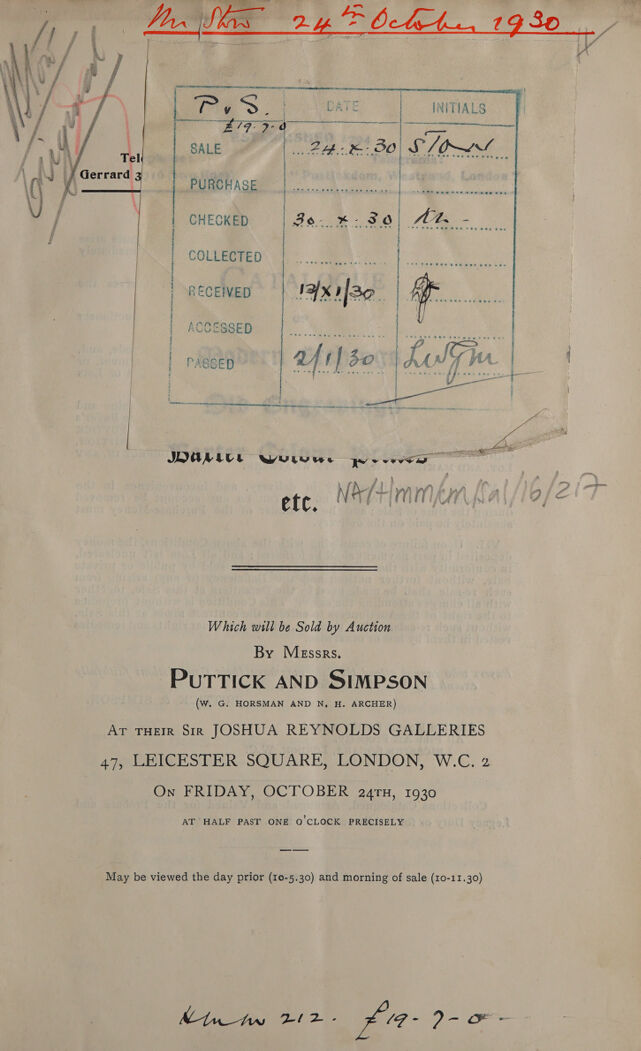 24th October 1930
P & S.
DATE
INITIALS
£19-7-0
SALE 24.X.30 Stow
PURCHASE
Tel
Gerrard 3
CHECKED 30.X.30
COLLECTED
RECEIVED 13/XI/30
ACCESSED
PASSED 2/1/30
etc.
NA/H/mm/km/Sal/16/217
Which will be Sold by Auction
By Messrs.
PUTTICK AND SIMPSON
(W. G. HORSMAN AND N. H. ARCHER)
AT THEIR SIR JOSHUA REYNOLDS GALLERIES
47, LEICESTER SQUARE, LONDON, W.C. 2
ON FRIDAY, OCTOBER 24TH, 1930
AT HALF PAST ONE O'CLOCK PRECISELY
May be viewed the day prior (10-5.30) and morning of sale (10-11.30)
212. £19-7-0